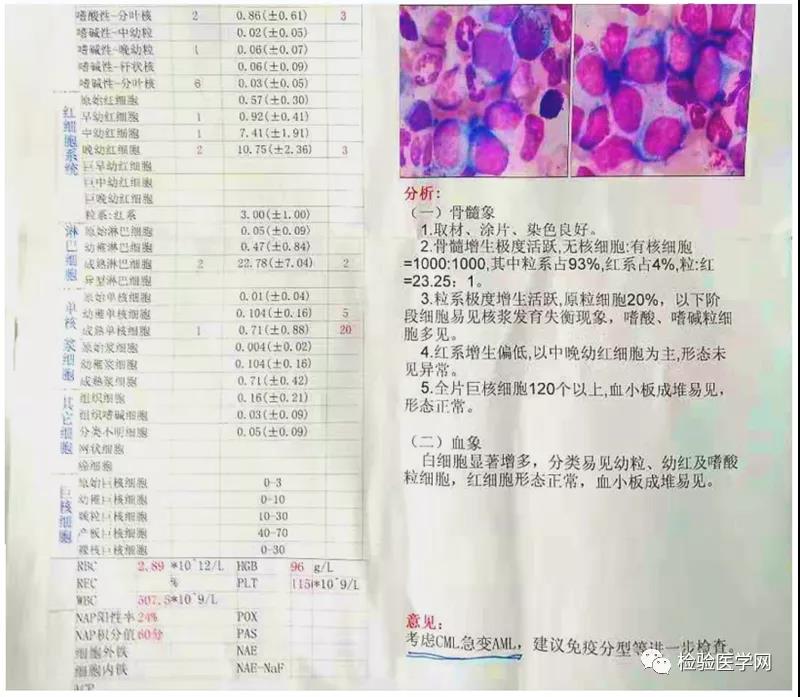 嗜酸性-分叶核 2 0.86(±0.61) 3
嗜碱性-中幼粒 0.02(±0.05)
嗜碱性-晚幼粒 1 0.06(±0.07)
嗜碱性-杆状核 0.06(±0.09)
嗜碱性-分叶核 6 0.03(±0.05)
红细胞系统
原始红细胞 0.57(±0.30)
早幼红细胞 1 0.92(±0.41)
中幼红细胞 1 7.41(±1.91)
晚幼红细胞 2 10.75(±2.36) 3
巨早幼红细胞
巨中幼红细胞
巨晚幼红细胞
粒系:红系 3.00(±1.00)
淋巴细胞
原始淋巴细胞 0.05(±0.09)
幼稚淋巴细胞 0.47(±0.84)
成熟淋巴细胞 2 22.78(±7.04) 2
异型淋巴细胞
单核 浆细胞
原始单核细胞 0.01(±0.04)
幼稚单核细胞 0.104(±0.16) 5
成熟单核细胞 1 0.71(±0.88) 20
原始浆细胞 0.004(±0.02)
幼稚浆细胞 0.104(±0.16)
成熟浆细胞 0.71(±0.42)
其它细胞
组织细胞 0.16(±0.21)
组织嗜碱细胞 0.03(±0.09)
分类不明细胞 0.05(±0.09)
网状细胞
癌细胞
巨核细胞
原始巨核细胞 0-3
幼稚巨核细胞 0-10
颗粒巨核细胞 10-30
产板巨核细胞 40-70
裸核巨核细胞 0-30
RBC 2.89 *10^12/L HGB 96 g/L
REC % PLT 1150*10^9/L
WBC 507.5*10^9/L
NAP阳性率 24% POX
NAP积分值 60分 PAS
细胞外铁 NAE
细胞内铁 NAE-NaF
分析:
(一)骨髓象
1.取材、涂片、染色良好。
2.骨髓增生极度活跃,无核细胞:有核细胞
=1000:1000,其中粒系占93%,红系占4%,粒:红
=23.25: 1。
3.粒系极度增生活跃,原粒细胞20%, 以下阶
段细胞易见核浆发育失衡现象,嗜酸、嗜碱粒细
胞多见。
4.红系增生偏低,以中晚幼红细胞为主,形态未
见异常。
5.全片巨核细胞120个以上,血小板成堆易见,
形态正常。
(二)血象
白细胞显著增多, 分类易见幼粒、幼红及嗜酸
粒细胞, 红细胞形态正常, 血小板成堆易见。
意见:
考虑CML急变AML, 建议免疫分型等进一步检查。
检验医学网